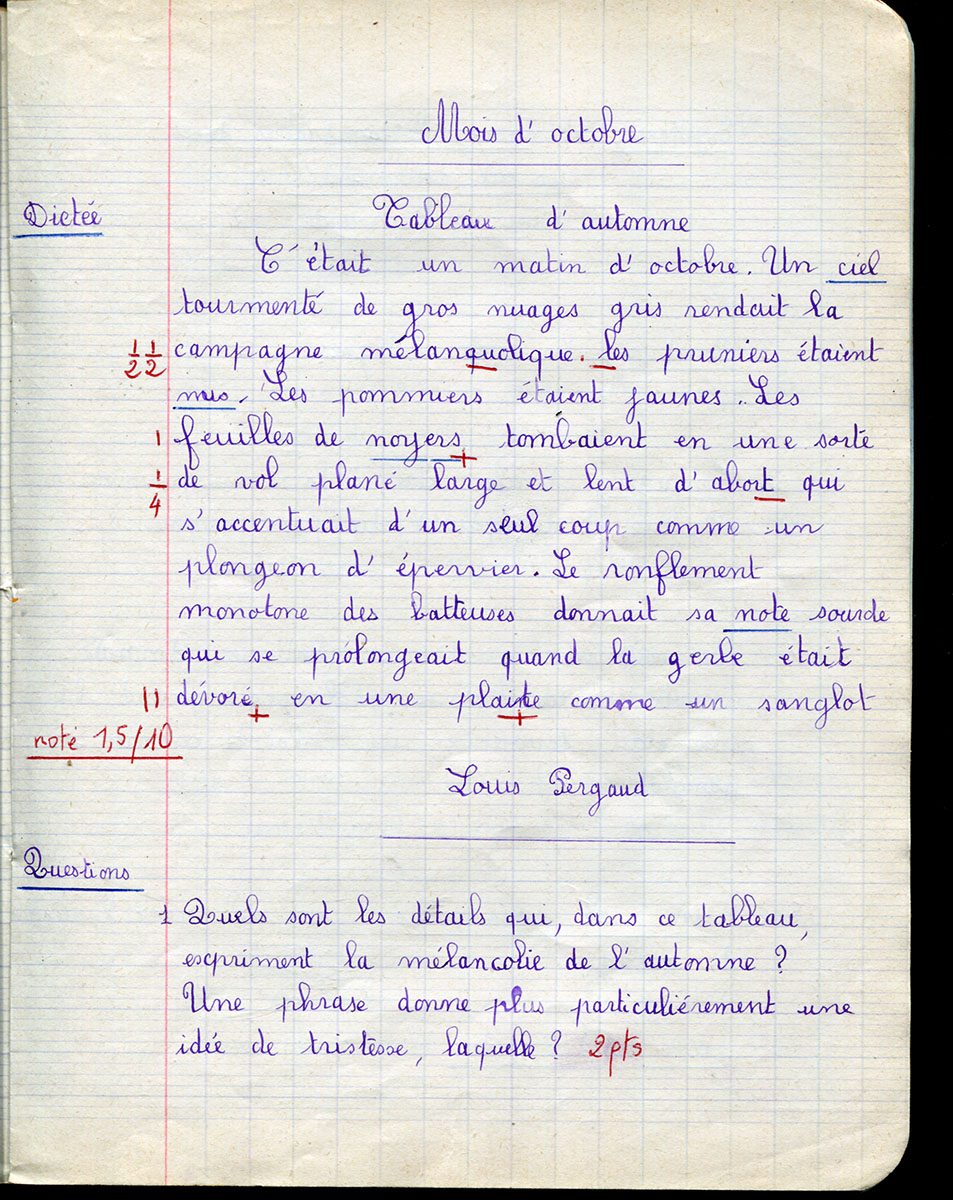 Mois d'octobre
Dictée
Tableau d'automne
C'était un matin d'octobre. Un ciel
tourmenté de gros nuages gris rendait la
1/2 1/2 campagne mélanquolique. les pruniers étaient
nus. Les pommiers étaient jaunes. Les
1 feuilles de noyers, tombaient en une sorte
1/4 de vol plané large et lent d'abort qui
s'accentuait d'un seul coup comme un
plongeon d'épervier. Le ronflement
monotone des batteuses donnait sa note sourde
qui se prolongeait quand la gerbe était
11 dévoré, en une plainte comme un sanglot
noté 1,5/10
Louis Pergaud
Questions
1 Quels sont les détails qui, dans ce tableau,
expriment la mélancolie de l'automne ?
Une phrase donne plus particuliérement une
idée de tristesse, laquelle ? 2 pts